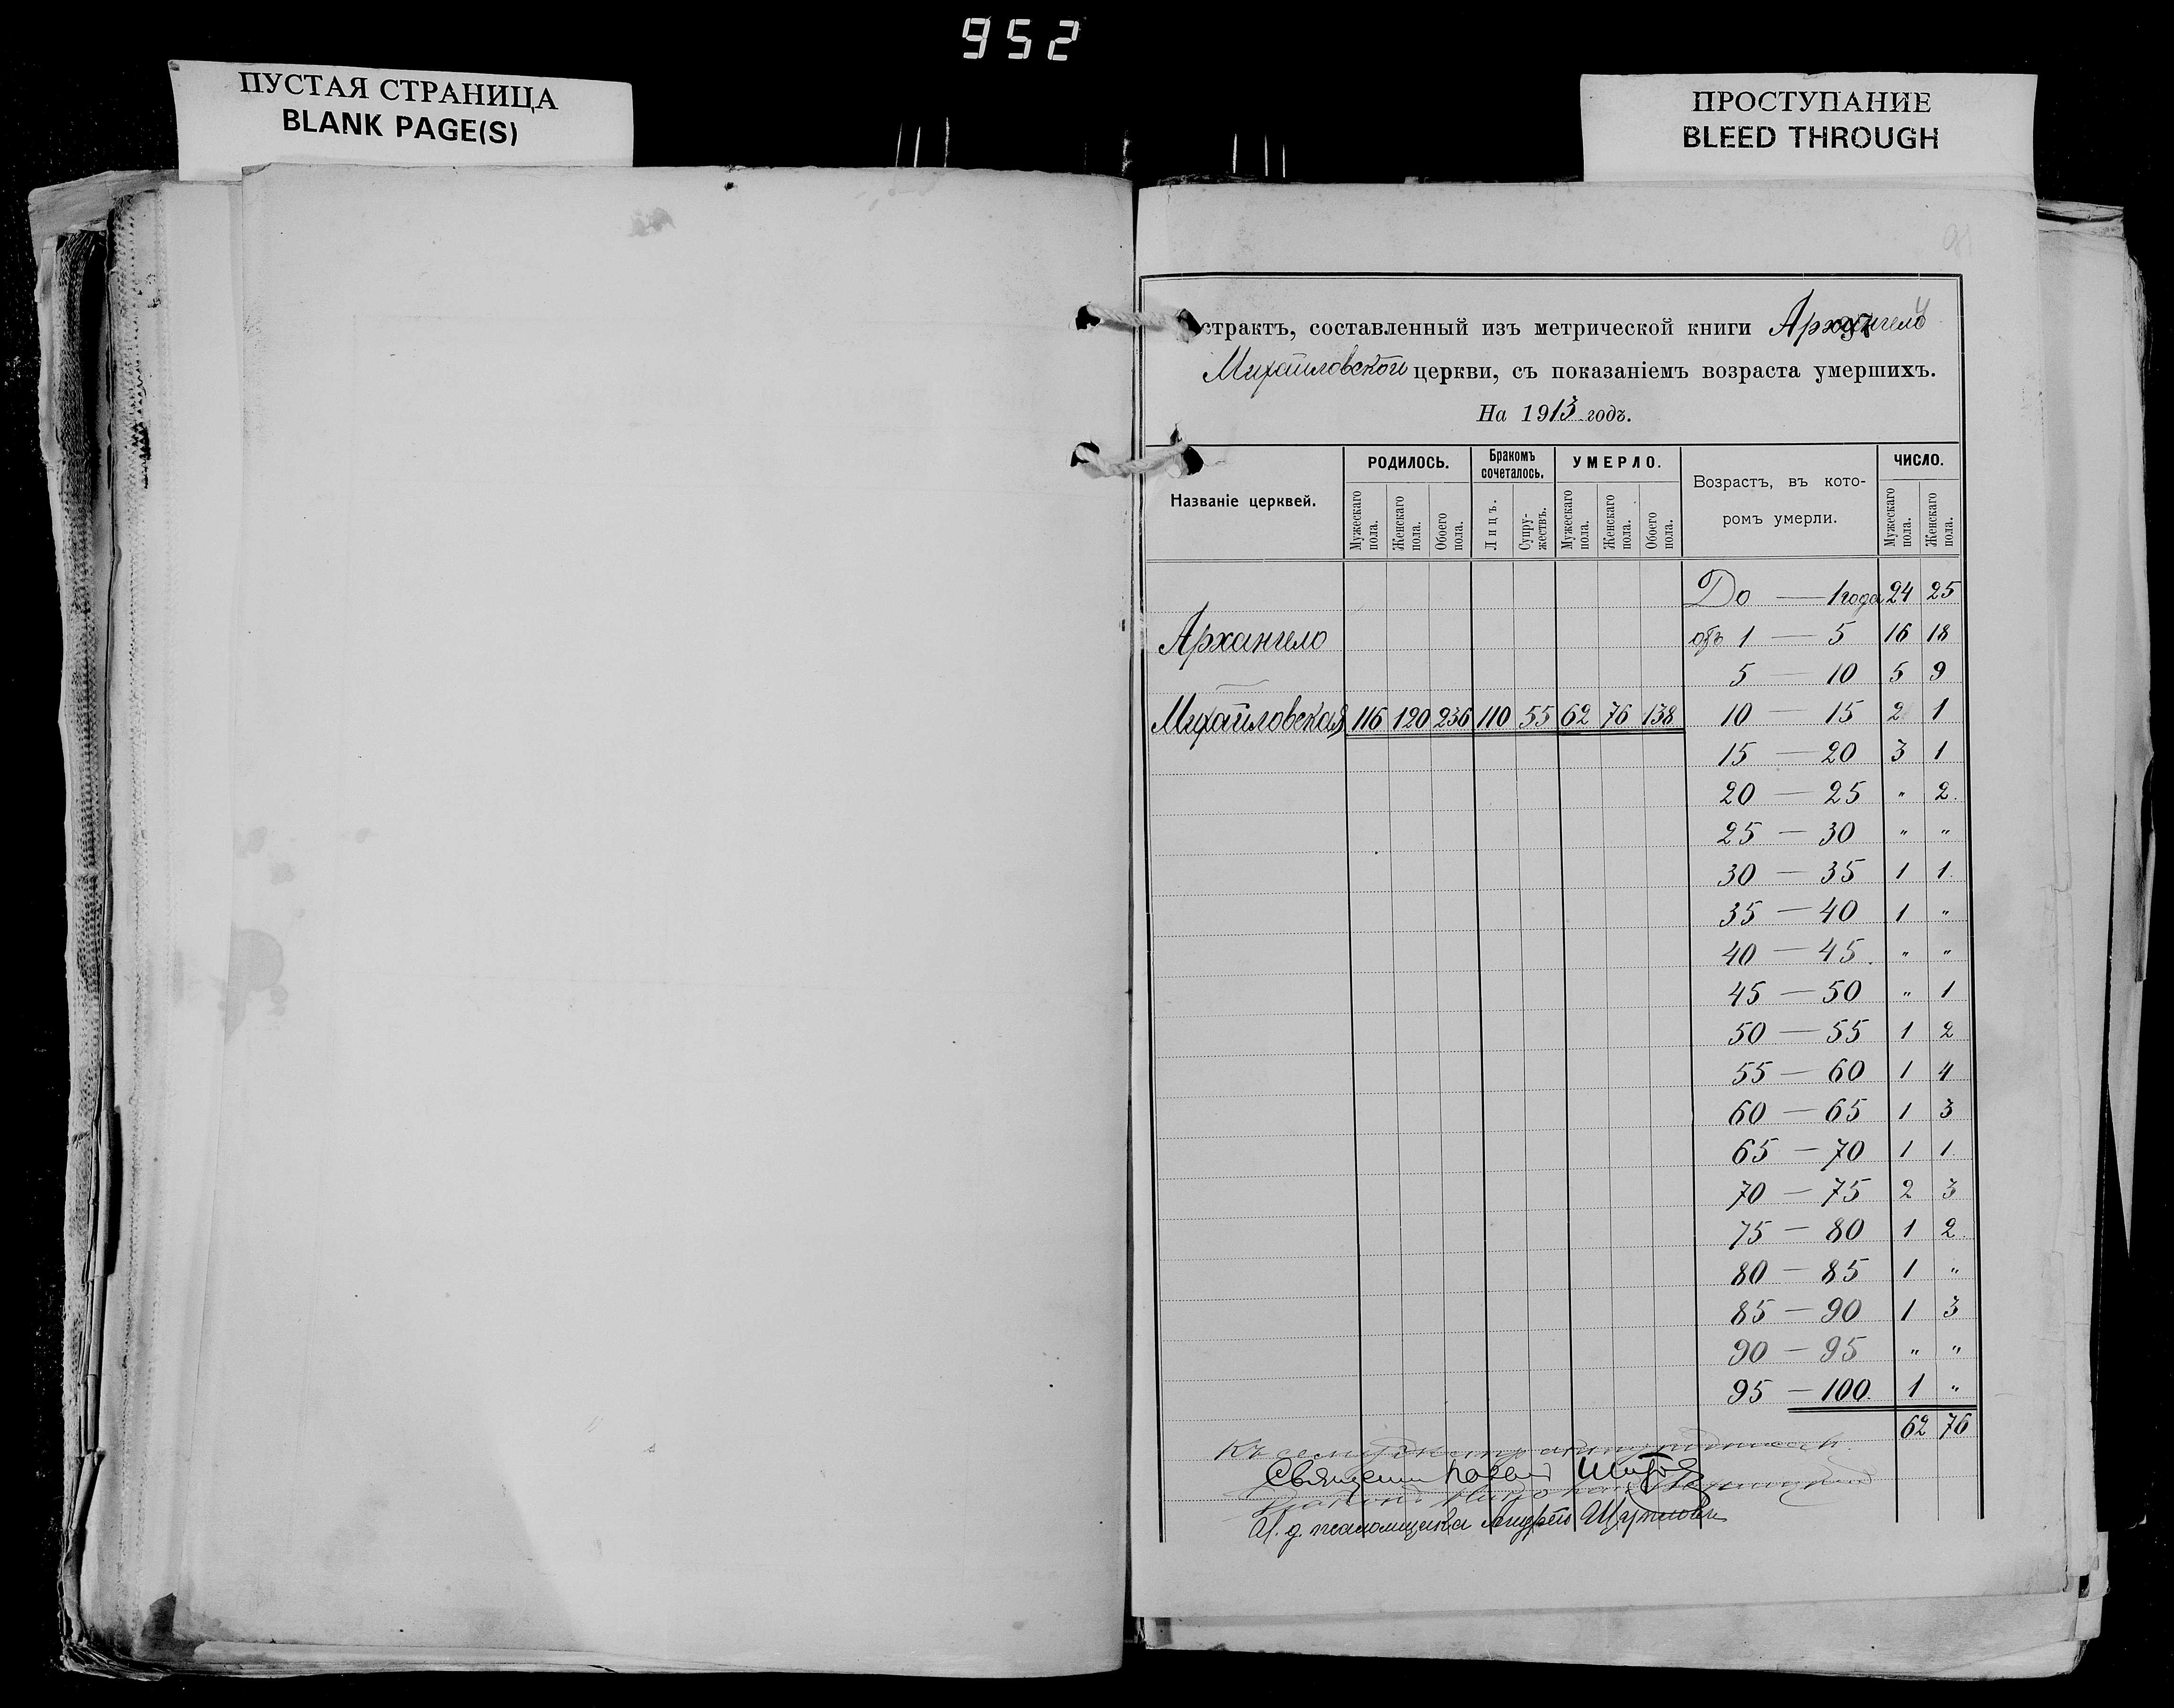 952
ПУСТАЯ СТРАНИЦА
BLANK PAGE(S)
ПРОСТУПАНИЕ
BLEED THROUGH
страктъ, составленный изъ метрической книги Архангело
Михайловской церкви, съ показаніемъ возраста умершихъ.
На 1913 годъ.
Названіе церквей.
РОДИЛОСЬ.
Бракомъ сочеталось.
УМЕРЛО.
Возрастъ, въ кото-
ромъ умерли.
ЧИСЛО.
Мужескаго пола. Женскаго пола. Обоего пола. Лицъ. Супру-жествъ. Мужескаго пола. Женскаго пола. Обоего пола. Мужескаго пола. Женскаго пола.
До — 1 года 24 25
Архангело отъ 1 — 5 16 18
5 — 10 5 9
Михайловская 116 120 236 110 55 62 76 138 10 — 15 2 1
15 — 20 3 1
20 — 25 " 2
25 — 30 " "
30 — 35 1 1
35 — 40 1 "
40 — 45 " "
45 — 50 " 1
50 — 55 1 2
55 — 60 1 4
60 — 65 1 3
65 — 70 1 1
70 — 75 2 3
75 — 80 1 2
80 — 85 1 "
85 — 90 1 3
90 — 95 " "
95 — 100 1 "
62 76
Къ
Священ
И. д. псаломщика Андрей